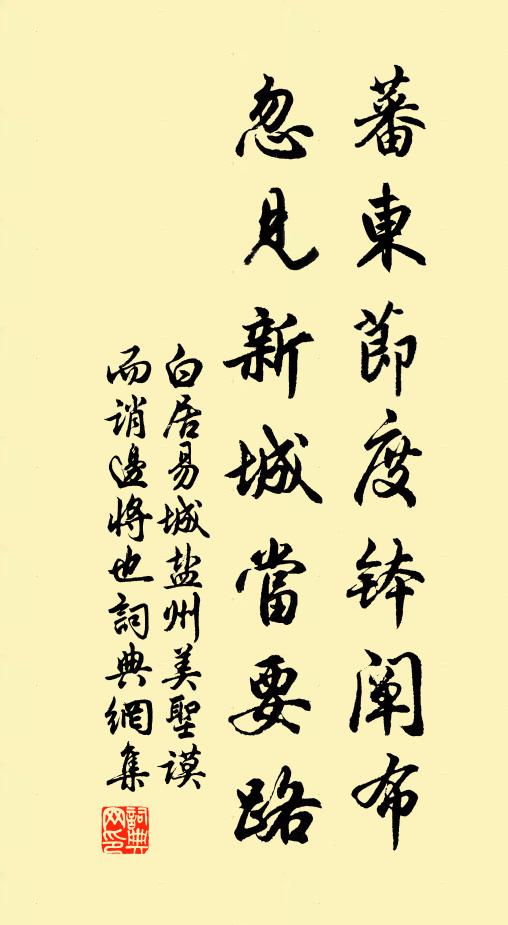 蕃東節度鉢闡布
忽見新城當要路
白居易城盐州美聖謨
而誚邊將也詞典網集
詞典
网印